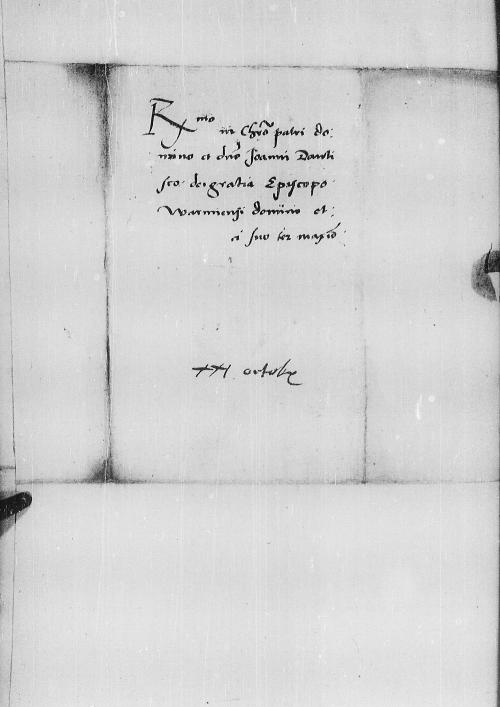 Rmo
in Chro patri do:
mino et dno Ioanni Danti
sco dei gratia Episcopo
Warmiensi domino et
ei suo ter maxio
XXI octobr